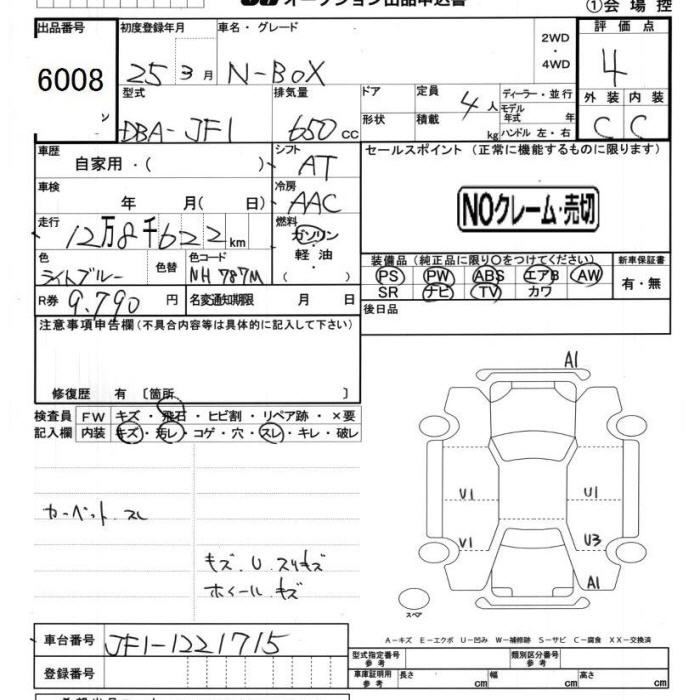 オークション出品申込書
①会場控
出品番号 初度登録年月 車名・グレード 2WD・4WD 評価点
6008 25 3月 N-BOX 4
型式 排気量 ドア 定員 ディーラー・並行 外装 内装
DBA-JF1 650cc 形状 積載 4人 kg モデル年式 年 ハンドル 左・右 C C
車歴 自家用・( ) シフト AT セールスポイント (正常に機能するものに限ります)
車検 年 月( 日) 冷房 AAC NOクレーム・売切
走行 12万8千622km 燃料 ガソリン・軽油・( )
色 ライトブルー 色替 色コード NH787M
装備品(純正品に限り○をつけてください) 新車保証書
PS PW ABS エアB AW 有・無
SR ナビ TV カワ
R券 9.790円 名変通知期限 月 日 後日品
注意事項申告欄(不具合内容等は具体的に記入して下さい)
修復歴 有 〔箇所 〕
検査員 FW キズ・飛石・ヒビ割・リペア跡・×要
記入欄 内装 キズ・汚レ・コゲ・穴・スレ・キレ・破レ
A1
カーペット スレ
U1 U1
V1 U3
キズ、U、スリキズ
ホイール キズ
A1
スペア
A-キズ E-エクボ U-凹み W-補修跡 S-サビ C-腐食 XX-交換済
車台番号 JF1-1221715
型式指定番号 参考 類別区分番号 参考
登録番号 車庫証明用 参考 長さ cm 幅 cm 高さ cm